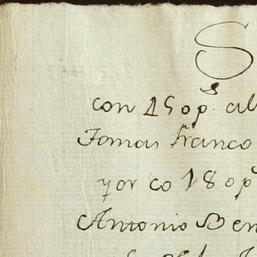 S
con 150 p.s al
Tomas Franco
y or co 180 ps
Antonio Ben